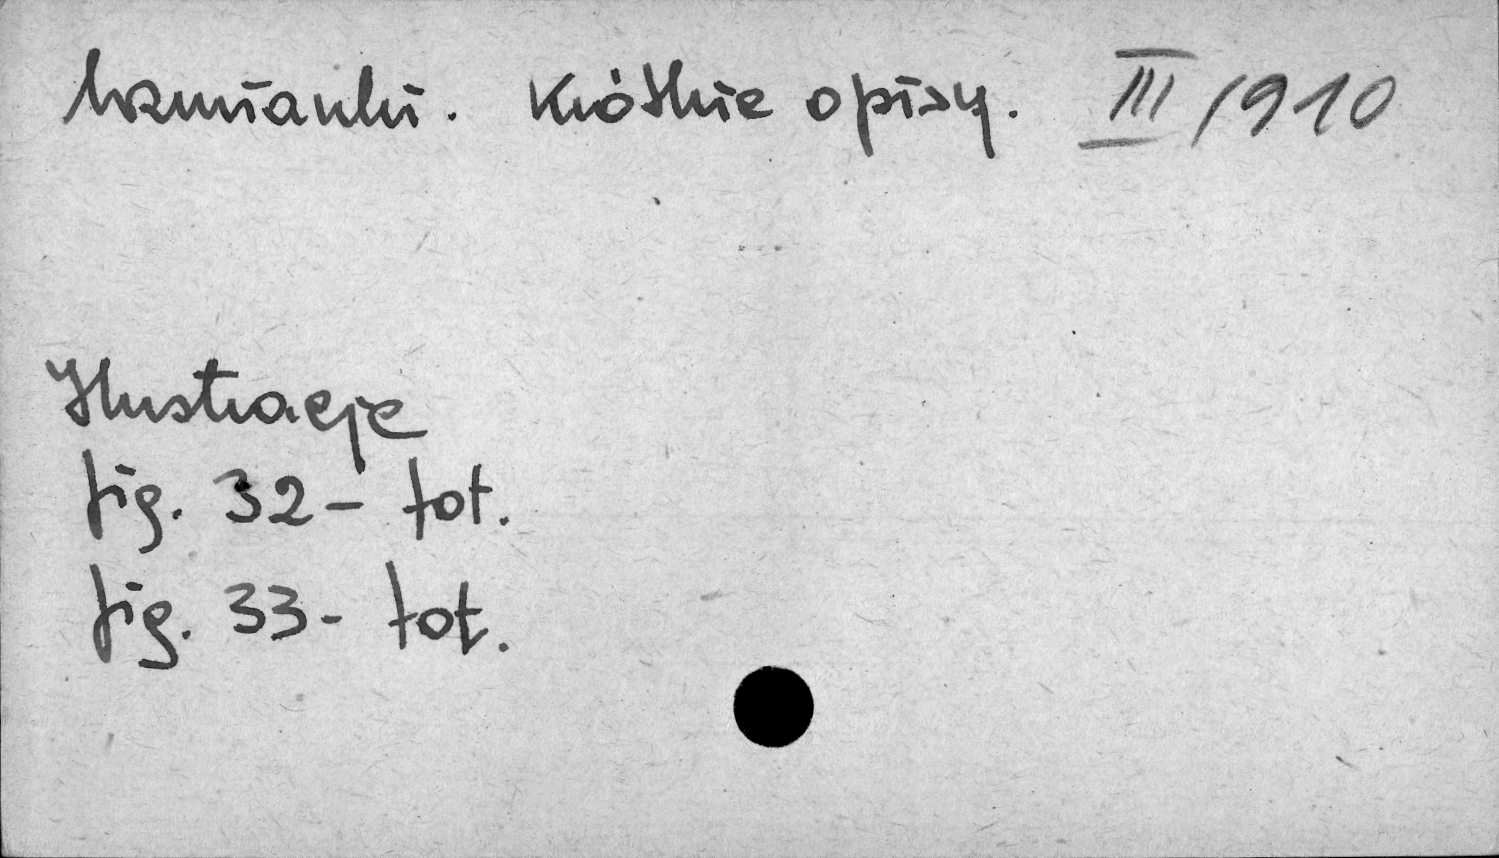 Wzmianki. Krótkie opisy. III/910
Ilustracje
fig. 32 - fot.
fig. 33 - fot.